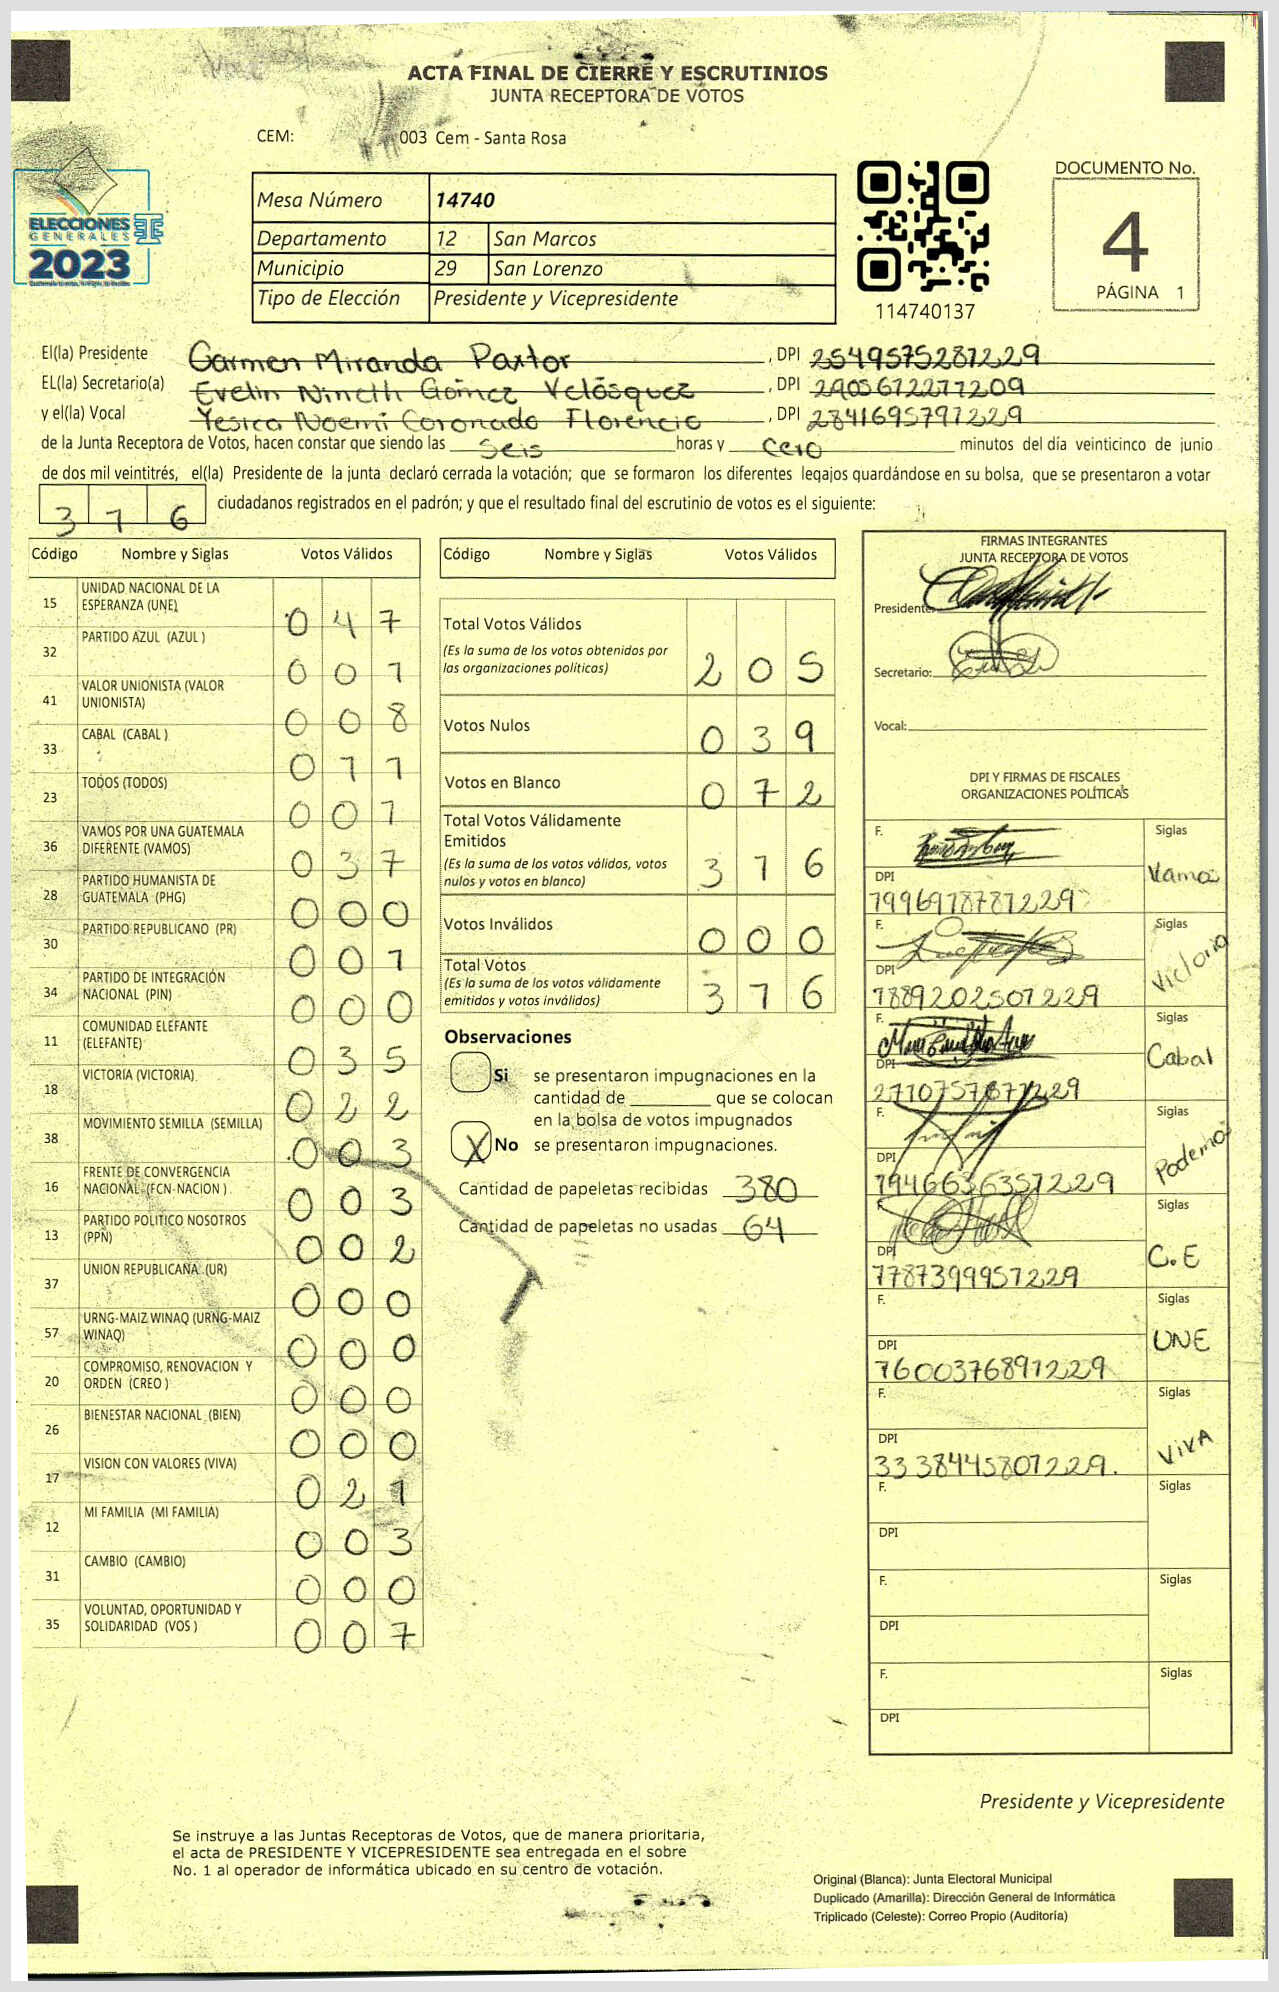 ACTA FINAL DE CIERRE Y ESCRUTINIOS
JUNTA RECEPTORA DE VOTOS
CEM: 003 Cem - Santa Rosa
ELECCIONES
GENERALES
2023
Mesa Número 14740
Departamento 12 San Marcos
Municipio 29 San Lorenzo
Tipo de Elección Presidente y Vicepresidente
114740137
DOCUMENTO No.
4
PÁGINA 1
El(la) Presidente Carmen Miranda Pastor, DPI 2549575281229
EL(la) Secretario(a) Evelin Nineth Gómez Velásquez, DPI 2905672271209
y el(la) Vocal Yesica Noemi Coronado Florencio, DPI 2841695791229
de la Junta Receptora de Votos, hacen constar que siendo las Seis horas y cero minutos del día veinticinco de junio
de dos mil veintitrés, el(la) Presidente de la junta declaró cerrada la votación; que se formaron los diferentes legajos guardándose en su bolsa, que se presentaron a votar
316 ciudadanos registrados en el padrón; y que el resultado final del escrutinio de votos es el siguiente:
Código Nombre y Siglas Votos Válidos
15 UNIDAD NACIONAL DE LA ESPERANZA (UNE) 047
32 PARTIDO AZUL (AZUL ) 001
41 VALOR UNIONISTA (VALOR UNIONISTA) 008
33 CABAL (CABAL ) 011
23 TODOS (TODOS) 001
36 VAMOS POR UNA GUATEMALA DIFERENTE (VAMOS) 037
28 PARTIDO HUMANISTA DE GUATEMALA (PHG) 000
30 PARTIDO REPUBLICANO (PR) 001
34 PARTIDO DE INTEGRACIÓN NACIONAL (PIN) 000
11 COMUNIDAD ELEFANTE (ELEFANTE) 035
18 VICTORIA (VICTORIA) 022
38 MOVIMIENTO SEMILLA (SEMILLA) 003
16 FRENTE DE CONVERGENCIA NACIONAL (FCN-NACION ) 003
13 PARTIDO POLITICO NOSOTROS (PPN) 002
37 UNION REPUBLICANA (UR) 000
57 URNG-MAIZ WINAQ (URNG-MAIZ WINAQ) 000
20 COMPROMISO, RENOVACION Y ORDEN (CREO ) 000
26 BIENESTAR NACIONAL (BIEN) 000
17 VISION CON VALORES (VIVA) 021
12 MI FAMILIA (MI FAMILIA) 003
31 CAMBIO (CAMBIO) 000
35 VOLUNTAD, OPORTUNIDAD Y SOLIDARIDAD (VOS ) 007
Código Nombre y Siglas Votos Válidos
Total Votos Válidos
(Es la suma de los votos obtenidos por
las organizaciones políticas) 205
Votos Nulos 039
Votos en Blanco 072
Total Votos Válidamente
Emitidos
(Es la suma de los votos válidos, votos
nulos y votos en blanco) 316
Votos Inválidos 000
Total Votos
(Es la suma de los votos válidamente
emitidos y votos inválidos) 316
Observaciones
Si se presentaron impugnaciones en la
cantidad de ________ que se colocan
en la bolsa de votos impugnados
X No se presentaron impugnaciones.
Cantidad de papeletas recibidas 380
Cantidad de papeletas no usadas 64
FIRMAS INTEGRANTES
JUNTA RECEPTORA DE VOTOS
Presidente:
Secretario:
Vocal:
DPI Y FIRMAS DE FISCALES
ORGANIZACIONES POLÍTICAS
F. Siglas Vamos
DPI 1996918781229
F. Siglas Victoria
DPI 1889202501229
F. Siglas Cabal
DPI 2710757871229
F. Siglas Podemos
DPI 1946636351229
F. Siglas C.E
DPI 1787399951229
F. Siglas UNE
DPI 1600376891229
F. Siglas VIVA
DPI 3338445801229.
F. Siglas
DPI
F. Siglas
DPI
F. Siglas
DPI
Presidente y Vicepresidente
Se instruye a las Juntas Receptoras de Votos, que de manera prioritaria,
el acta de PRESIDENTE Y VICEPRESIDENTE sea entregada en el sobre
No. 1 al operador de informática ubicado en su centro de votación.
Original (Blanca): Junta Electoral Municipal
Duplicado (Amarilla): Dirección General de Informática
Triplicado (Celeste): Correo Propio (Auditoría)